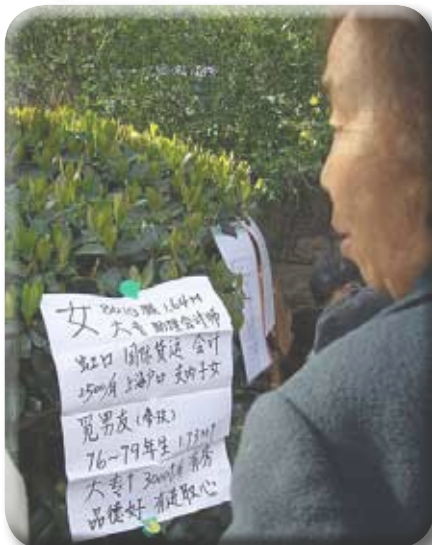 女 80.10 1.64M
大专 助理会计师
虹口 国际货运 会计
2500/月 上海户口 独子女
觅男友(希孩)
76~79年生 1.73m↑
大专↑ 3000↑/月 有房
品德好 有进取心